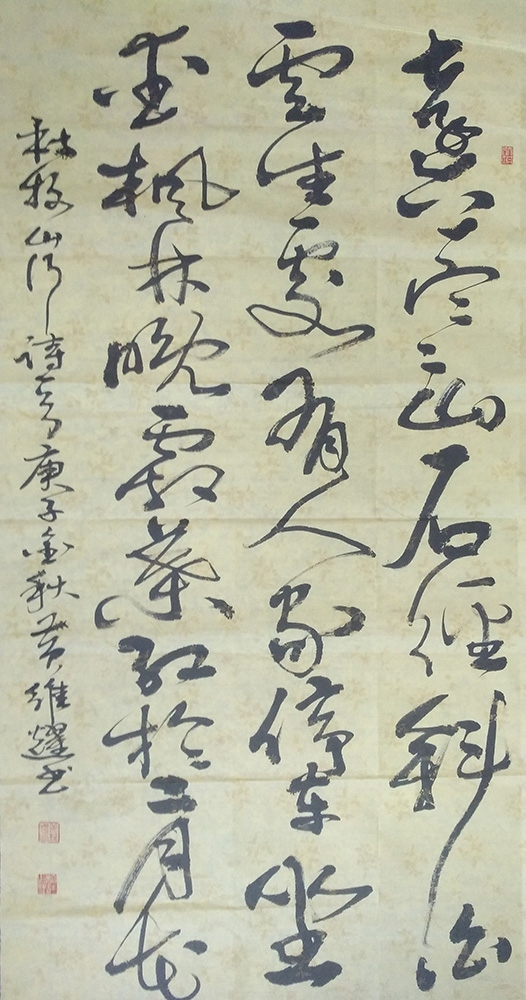 遠上寒山石徑斜白
雲生處有人家停車坐
愛楓林晚霜葉紅於二月花
杜牧山行詩一首庚子金秋黄維耀書